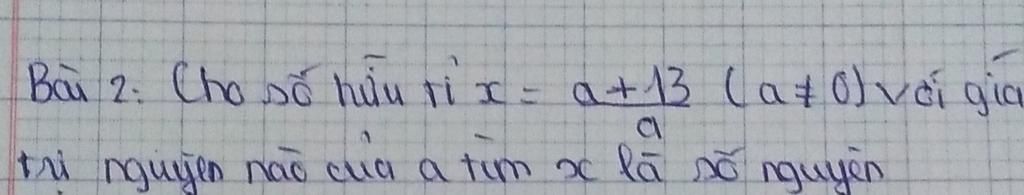 Bài 2: Cho số hữu tỉ x = \frac{a + 13}{a} (a ≠ 0) với giá
trị nguyên nào của a tìm x là số nguyên